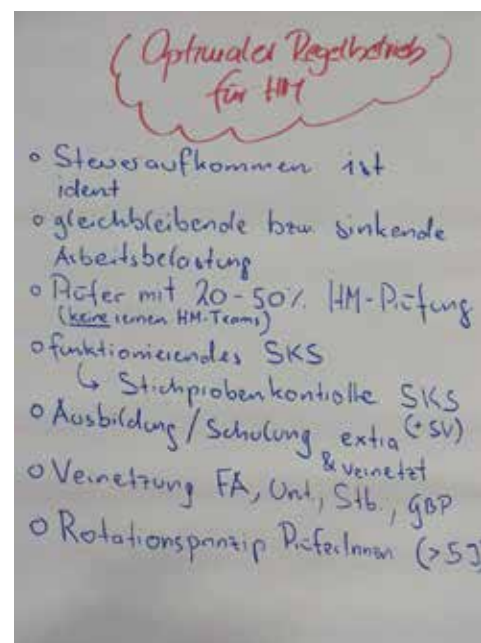 Optimaler Regelbetrieb
für HM
o Steueraufkommen ist
ident
o gleichbleibende bzw. sinkende
Arbeitsbelastung
o Prüfer mit 20-50% HM-Prüfung
(keine reinen HM-Teams)
o funktionierendes SKS
↳ Stichprobenkontrolle SKS
o Ausbildung / Schulung extra (+SV)
& vernetzt
o Vernetzung FA, Unt., Stb., GBP
o Rotationsprinzip PrüferInnen (>5J